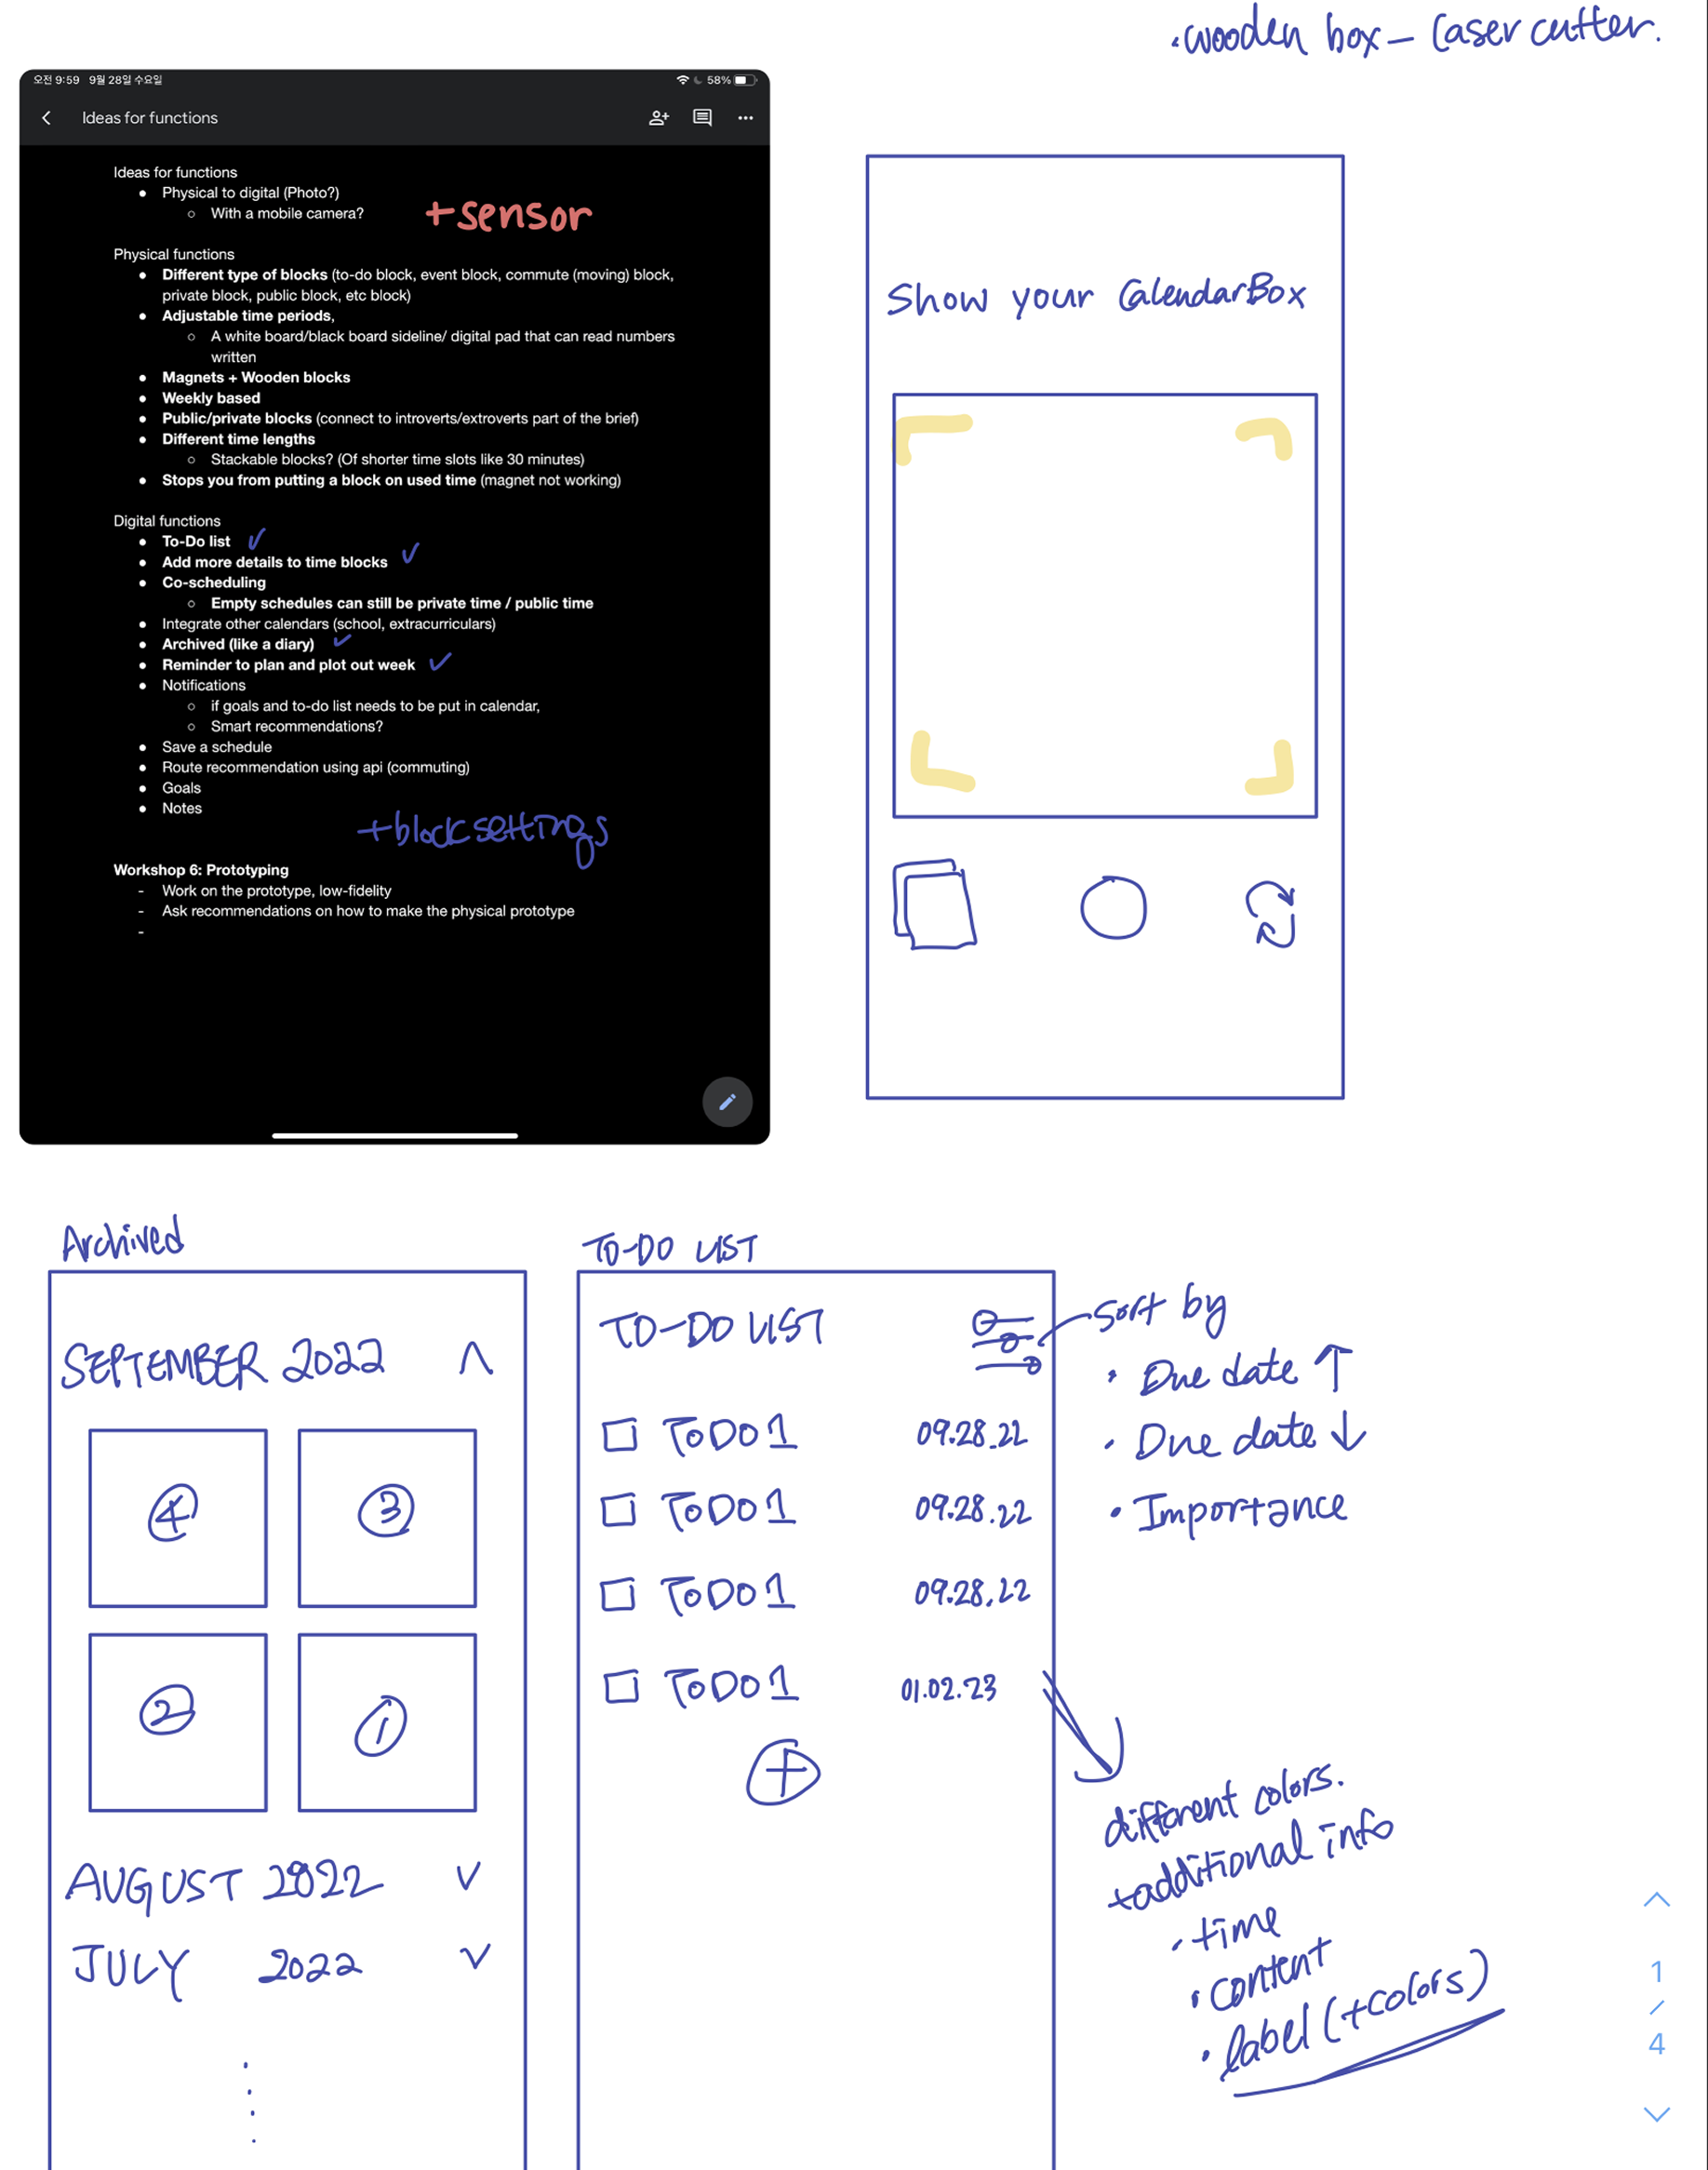 ·wooden box – Laser cutter.
오전 9:59 9월 28일 수요일
58%
Ideas for functions
Ideas for functions
● Physical to digital (Photo?)
○ With a mobile camera?
+sensor
Physical functions
● Different type of blocks (to-do block, event block, commute (moving) block,
private block, public block, etc block)
● Adjustable time periods,
○ A white board/black board sideline/ digital pad that can read numbers
written
● Magnets + Wooden blocks
● Weekly based
● Public/private blocks (connect to introverts/extroverts part of the brief)
● Different time lengths
○ Stackable blocks? (Of shorter time slots like 30 minutes)
● Stops you from putting a block on used time (magnet not working)
Digital functions
● To-Do list ✓
● Add more details to time blocks ✓
● Co-scheduling
○ Empty schedules can still be private time / public time
● Integrate other calendars (school, extracurriculars)
● Archived (like a diary) ✓
● Reminder to plan and plot out week ✓
● Notifications
○ if goals and to-do list needs to be put in calendar,
○ Smart recommendations?
● Save a schedule
● Route recommendation using api (commuting)
● Goals
● Notes
+block settings
Workshop 6: Prototyping
- Work on the prototype, low-fidelity
- Ask recommendations on how to make the physical prototype
-
Show your CalendarBox
Archived
SEPTEMBER 2022
④ ③
② ①
AUGUST 2022
JULY 2022
TO-DO LIST
TO-DO LIST
TODO1 09.28.22
TODO1 09.28.22
TODO1 09.28.22
TODO1 01.02.23
+
Sort by
· Due date ↑
· Due date ↓
· Importance
different colors.
+additional info
· time
· content
· label (+colors)
1
/
4